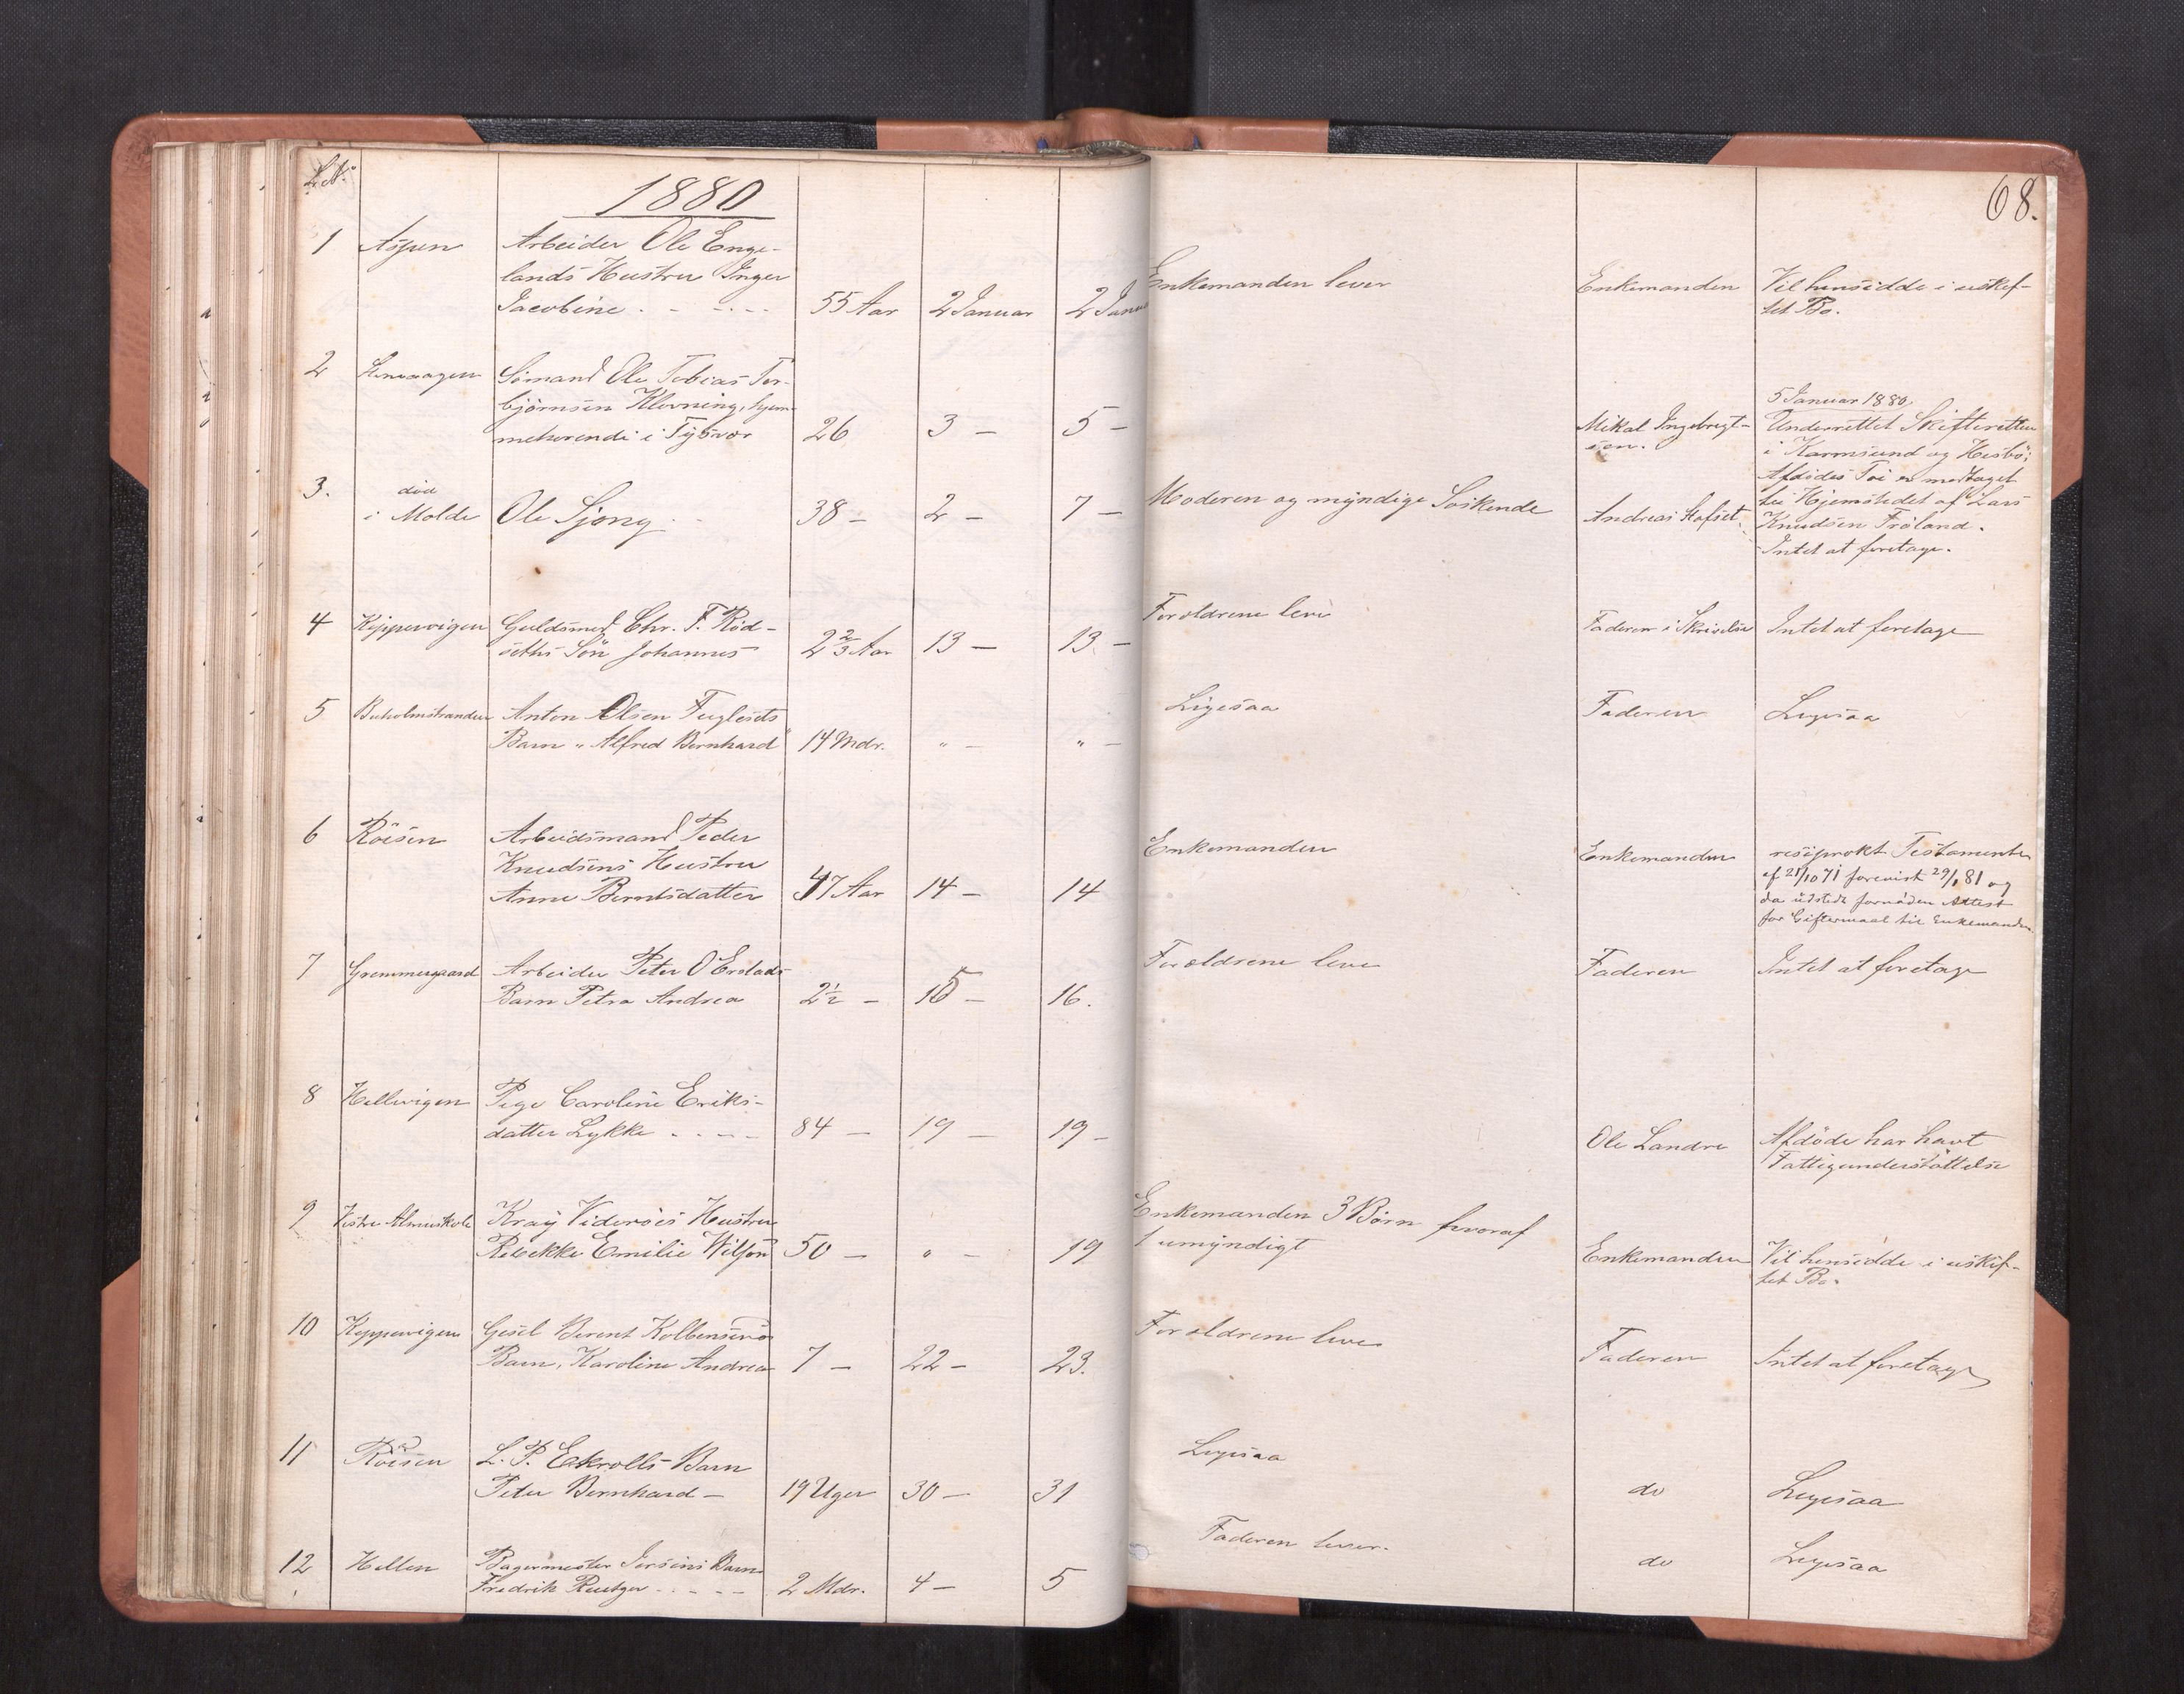 L. No.
1880
68.
1 Aspen Arbeider Ole Enge-
lands Hustru Inger
Jacobine . - - . - . 55 Aar 2 Januar 2 Janu
Enkemanden lever Enkemanden Vil hensidde i uskif-
tet Bo.
2 Sömand Ole Tobias Tor-
björnsen Klovning, hjem-
mehørende i Tysvær 26 3 — 5 —
Mikal Ingebrigt-
sen.
5 Januar 1880
Underrettet Skifteretten
i Karmsund og Hesbö;
Afdödes Töi er modtaget
til Hjemstedet af Lars
Knudsen Fröland.
3. død
i Molde Ole Sjong - - 38 — 2 — 7 —
Moderen og myndige Søskende Andreas Hofset. Intet at foretage.
4 Kippervigen Guldsmed Chr. F. Rød-
seths Sön Johannes 2 2/3 Aar 13 — 13 —
Forældrene leve Faderen i Skrivelse Intet at foretage
5 Buholmstranden Anton Olsen Fuglesets
Barn „Alfred Bernhard" 14 Mdr. „ — „ —
Ligesaa Faderen Ligesaa
6 Röisen Arbeidsmand Peder
Knudsens Hustru
Anne Berntsdatter 47 Aar 14 — 14
Enkemanden Enkemanden resiprokt Testamente
af 21/10 71 forevist 29/1 81 og
da udstedt fornøden Attest
for Giftermaal til Enkemanden
7 Gremmergaard Arbeider Peter O Erstads
Barn Petra Andrea 2 1/2 — 15 — 16.
Forældrene leve Faderen Intet at foretage
8 Hellevigen Pige Caroline Eriks-
datter Lykke . - . - - 84 — 19 — 19 —
Ole Landre Afdöde har havt
Fattigunderstöttelse
9 Vestre Almueskole Kraj Viderøes Hustru
Rebekke Emilie Wilson 50 — „ — 19
Enkemanden 3 Børn hvoraf
1 umyndigt Enkemanden Vil hensidde i uskif-
tet Bo.
10 Kippervigen Gesel Berent Kolbensens
Barn, Karoline Andrea 7 — 22 — 23.
Forældrene leve Faderen Intet at foretage
11 Röisen L. P. Eekrolls Barn
Peter Bernhard — 19 Uger 30 — 31
Ligesaa do Ligesaa
12 Hellen Bagermester Iversens Barn
Fredrik Rutger . - . - - 2 Mdr. 4 — 5
Faderen lever. do Ligesaa